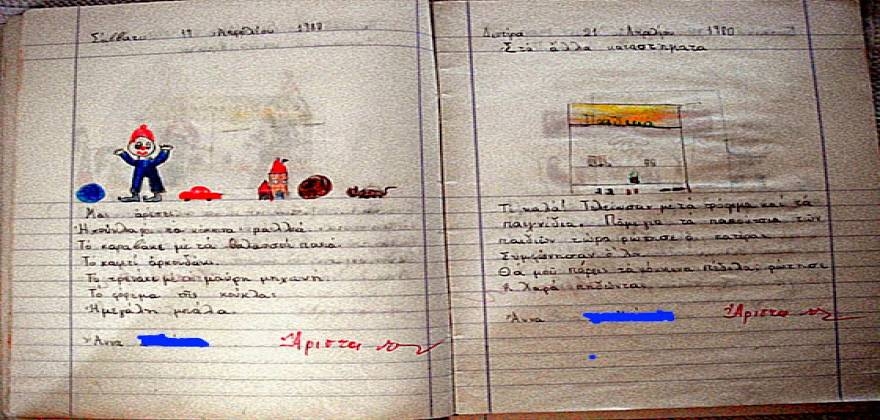 Σάββατο 19 Ἀπριλίου 1980
Μου ἀρέσει
Ἡ κούκλα μὲ τὰ κόκκινα μαλλιά.
Τὸ καραβάκι μὲ τὰ θαλασσιὰ πανιά.
Τὸ καφετὶ ἀρκουδάκι.
Τὸ τρενάκι μὲ τὴ μαύρη μηχανή.
Τὸ φόρεμα τῆς κούκλας
Ἡ μεγάλη μπάλα.
Ἄννα
Ἄριστα
Δευτέρα 21 Ἀπριλίου 1980
Στὰ ἄλλα καταστήματα
Τί καλά! Τελείωσαν μὲ τὸ φόρεμα καὶ τὰ
παιχνίδια. Πᾶμε γιὰ τὰ παπούτσια τῶν
παιδιῶν τώρα ρώτησε ὁ πατέρας.
Συμφώνησαν ὅλοι
Θὰ μοῦ πάρεις τὰ κόκκινα πέδιλα; ρώτησε
ἡ Χαρὰ πηδώντας.
Ἄννα
Ἄριστα